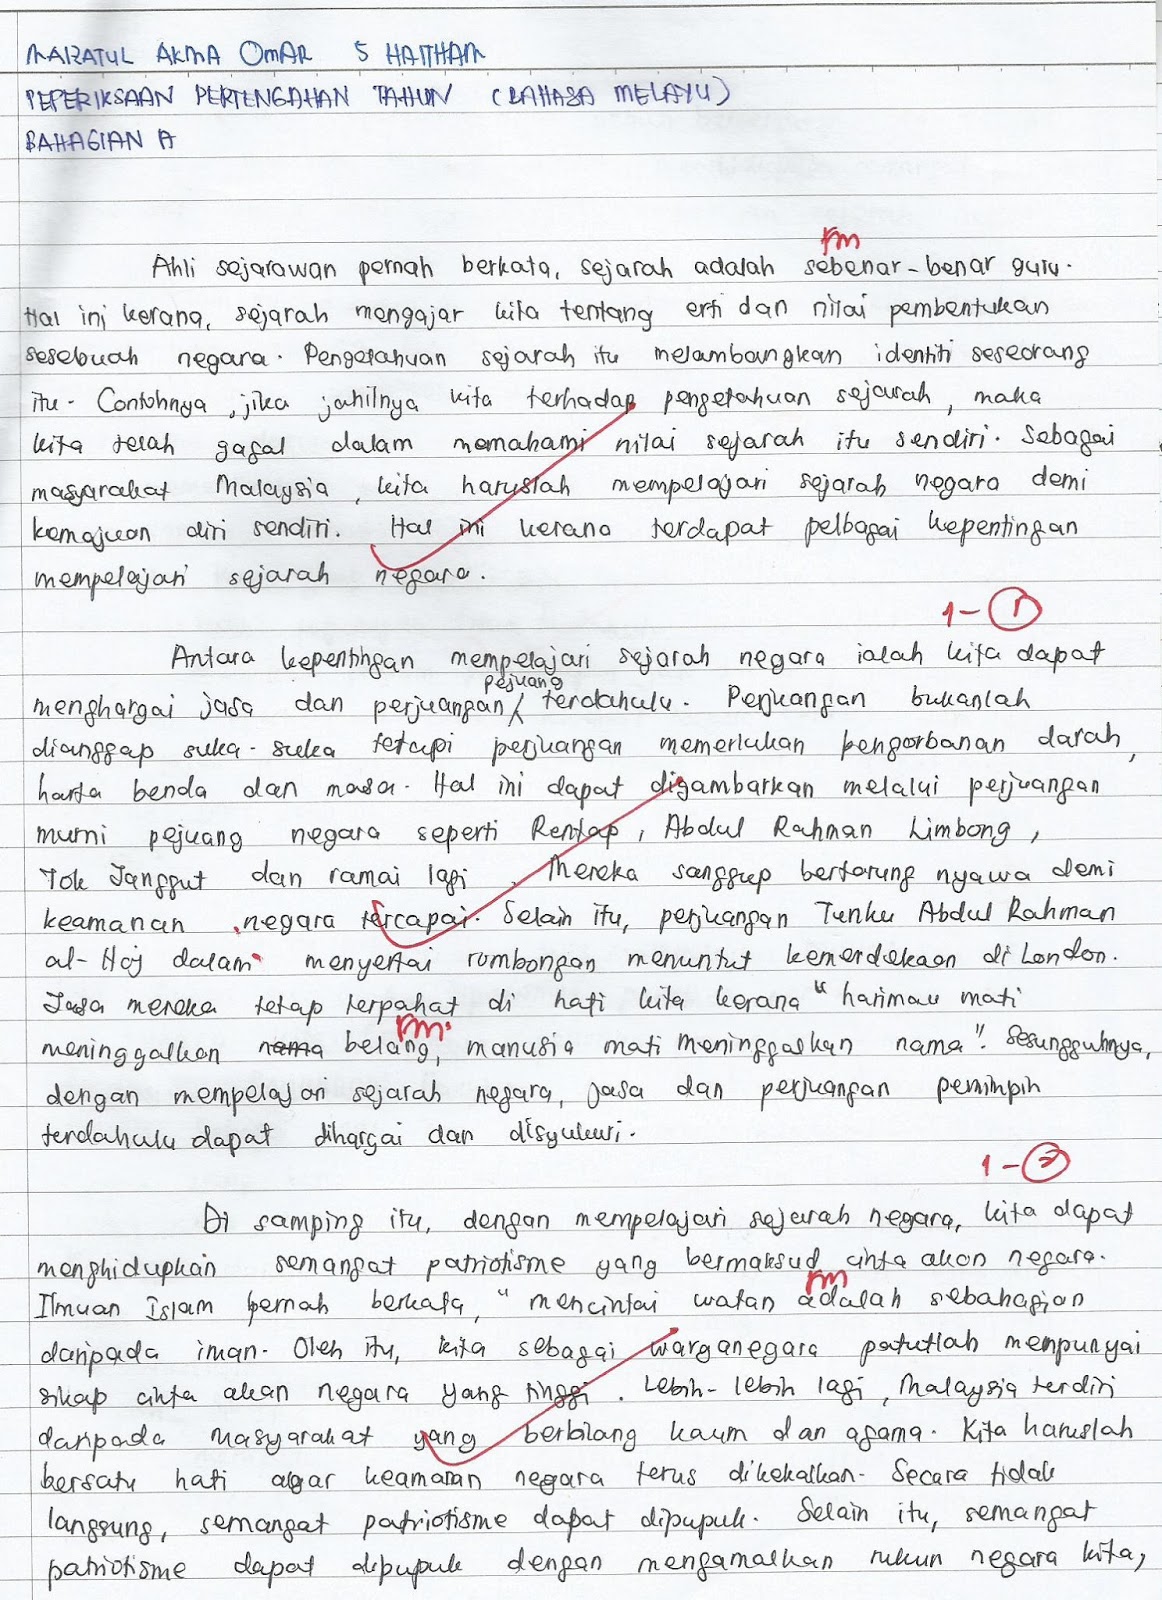 MAIZATUL AKMA OMAR 5 HAITHAM
PEPERIKSAAN PERTENGAHAN TAHUN (BAHASA MELAYU)
BAHAGIAN A
rm
Ahli sejarawan pernah berkata, sejarah adalah sebenar-benar guru.
Hal ini kerana, sejarah mengajar kita tentang erti dan nilai pembentukan
sesebuah negara. Pengetahuan sejarah itu melambangkan identiti seseorang
itu. Contohnya, jika jahilnya kita terhadap pengetahuan sejarah, maka
kita telah gagal dalam memahami nilai sejarah itu sendiri. Sebagai
masyarakat Malaysia, kita haruslah mempelajari sejarah negara demi
kemajuan diri sendiri. Hal ini kerana terdapat pelbagai kepentingan
mempelajari sejarah negara.
1-1
Antara kepentingan mempelajari sejarah negara ialah kita dapat
pejuang
menghargai jasa dan perjuangan terdahulu. Perjuangan bukanlah
dianggap suka-suka tetapi perjuangan memerlukan pengorbanan darah,
harta benda dan masa. Hal ini dapat digambarkan melalui perjuangan
murni pejuang negara seperti Rentap, Abdul Rahman Limbong,
Tok Janggut dan ramai lagi. Mereka sanggup bertarung nyawa demi
keamanan negara tercapai. Selain itu, perjuangan Tunku Abdul Rahman
al-Haj dalam menyertai rombongan menuntut kemerdekaan di London.
Jasa mereka tetap terpahat di hati kita kerana "harimau mati
rm
meninggalkan nama belang, manusia mati meninggalkan nama". Sesungguhnya,
dengan mempelajari sejarah negara, jasa dan perjuangan pemimpin
terdahulu dapat dihargai dan disyukuri.
1-2
Di samping itu, dengan mempelajari sejarah negara, kita dapat
menghidupkan semangat patriotisme yang bermaksud cinta akan negara.
rm
Ilmuan Islam pernah berkata, "mencintai watan adalah sebahagian
daripada iman. Oleh itu, kita sebagai warganegara patutlah mempunyai
sikap cinta akan negara yang tinggi. Lebih-lebih lagi, Malaysia terdiri
daripada masyarakat yang berbilang kaum dan agama. Kita haruslah
bersatu hati agar keamanan negara terus dikekalkan. Secara tidak
langsung, semangat patriotisme dapat dipupuk. Selain itu, semangat
patriotisme dapat dipupuk dengan mengamalkan rukun negara kita,